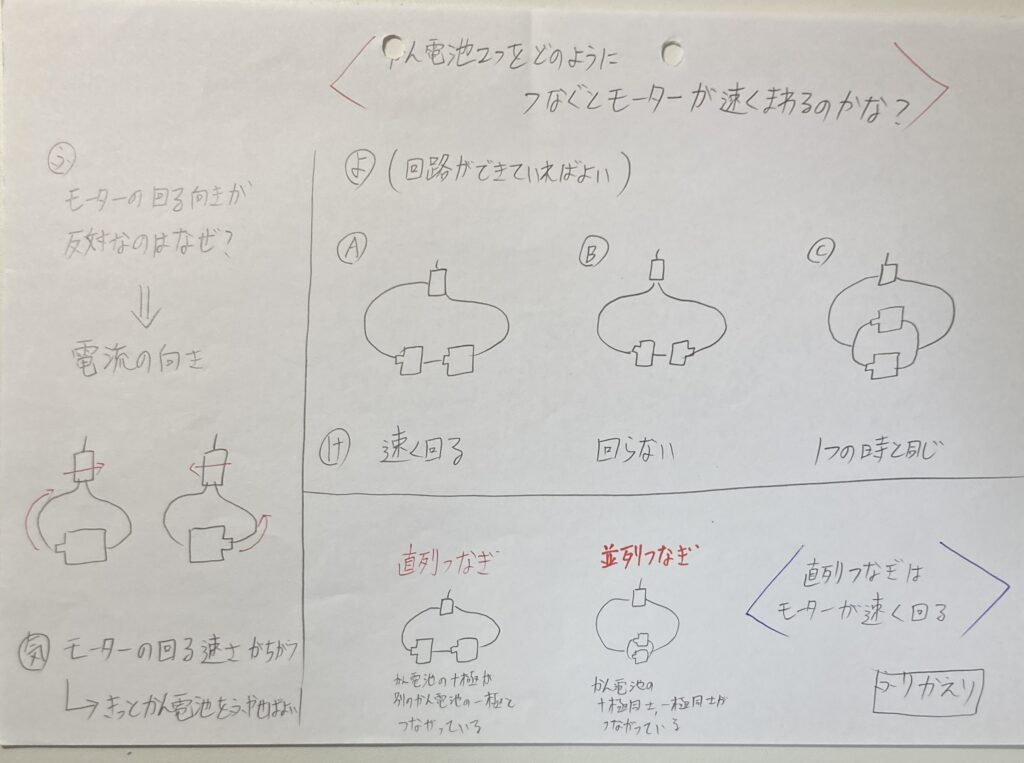 かん電池2つをどのように
つなぐとモーターが速くまわるのかな？
ふ
モーターの回る向きが
反対なのはなぜ？
電流の向き
気 モーターの回る速さがちがう
きっとかん電池をふやせばよい
よ (回路ができていればよい)
A B C
け 速く回る 回らない 1つの時と同じ
直列つなぎ
かん電池の+極が
別のかん電池の-極と
つながっている
並列つなぎ
かん電池の
+極同士,-極同士が
つながっている
直列つなぎは
モーターが速く回る
ふりかえり